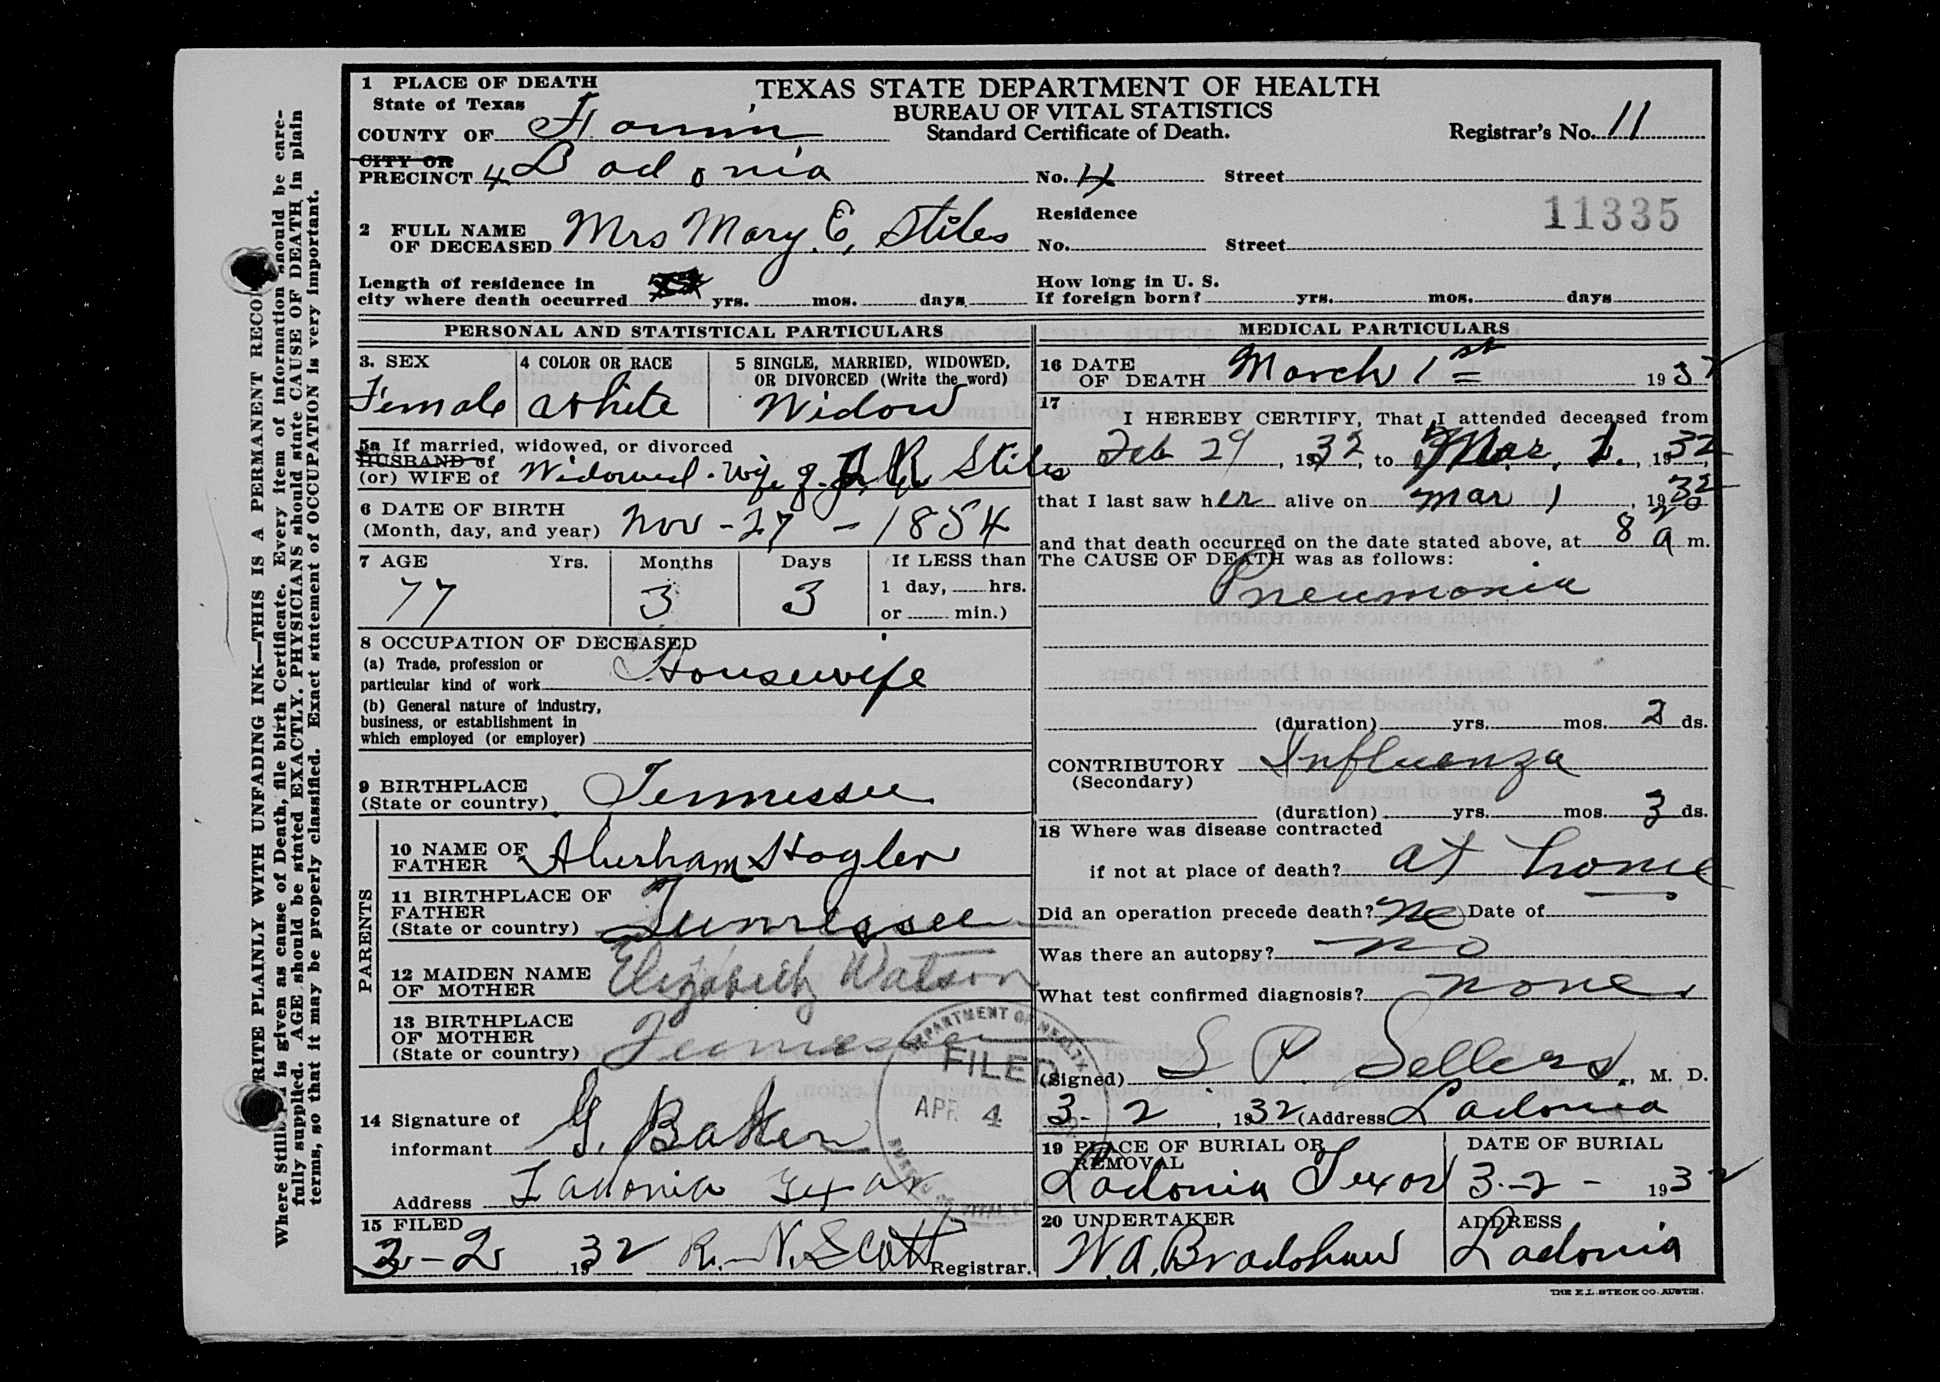 WRITE PLAINLY WITH UNFADING INK—THIS IS A PERMANENT RECORD
Where Still is given as cause of Death, file birth Certificate. Every item of information should be care-
fully supplied. AGE should be stated EXACTLY. PHYSICIANS should state CAUSE OF DEATH in plain
terms, so that it may be properly classified. Exact statement of OCCUPATION is very important.
TEXAS STATE DEPARTMENT OF HEALTH
BUREAU OF VITAL STATISTICS
Standard Certificate of Death.
Registrar's No. 11
1 PLACE OF DEATH
State of Texas
COUNTY OF Fannin
CITY OR
PRECINCT 4 Ladonia No. 4 Street
11335
2 FULL NAME
OF DECEASED Mrs Mary E. Stiles
Residence
No. Street
Length of residence in
city where death occurred yrs. mos. days
How long in U. S.
If foreign born? yrs. mos. days
PERSONAL AND STATISTICAL PARTICULARS
3. SEX
Female
4 COLOR OR RACE
White
5 SINGLE, MARRIED, WIDOWED,
OR DIVORCED (Write the word)
Widow
5a If married, widowed, or divorced
HUSBAND of
(or) WIFE of Widowed. Wife of R Stiles
6 DATE OF BIRTH
(Month, day, and year) Nov - 27 - 1854
7 AGE Yrs. Months Days If LESS than
77 3 3 1 day, hrs.
or min.)
8 OCCUPATION OF DECEASED
(a) Trade, profession or
particular kind of work Housewife
(b) General nature of industry,
business, or establishment in
which employed (or employer)
9 BIRTHPLACE
(State or country) Tennessee
PARENTS
10 NAME OF
FATHER Aberham Hogler
11 BIRTHPLACE OF
FATHER
(State or country) Tennessee
12 MAIDEN NAME
OF MOTHER Elizabeth Watson
13 BIRTHPLACE
OF MOTHER
(State or country) Tennessee
14 Signature of
informant G. Baker
Address Ladonia Texas
15 FILED
3-2 1932 R. N. Scott Registrar.
DEPARTMENT OF HEALTH
FILED
APR 4
BUREAU OF VITAL
MEDICAL PARTICULARS
16 DATE
OF DEATH March 1st 1932
17
I HEREBY CERTIFY, That I attended deceased from
Feb 29, 1932, to Mar, 1., 1932,
that I last saw her alive on Mar 1, 1932
and that death occurred on the date stated above, at 8 20 a m.
The CAUSE OF DEATH was as follows:
Pneumonia
(duration) yrs. mos. 2 ds.
CONTRIBUTORY Influenza
(Secondary)
(duration) yrs. mos. 3 ds.
18 Where was disease contracted
if not at place of death? at home
Did an operation precede death? no Date of
Was there an autopsy? no
What test confirmed diagnosis? none
(Signed) S. P. Sellers, M. D.
3-2, 1932 (Address Ladonia
19 PLACE OF BURIAL OR
REMOVAL
Ladonia Texas
DATE OF BURIAL
3-2-1932
20 UNDERTAKER
W.A. Bradshaw
ADDRESS
Ladonia
THE E.L. STECK CO. AUSTIN.